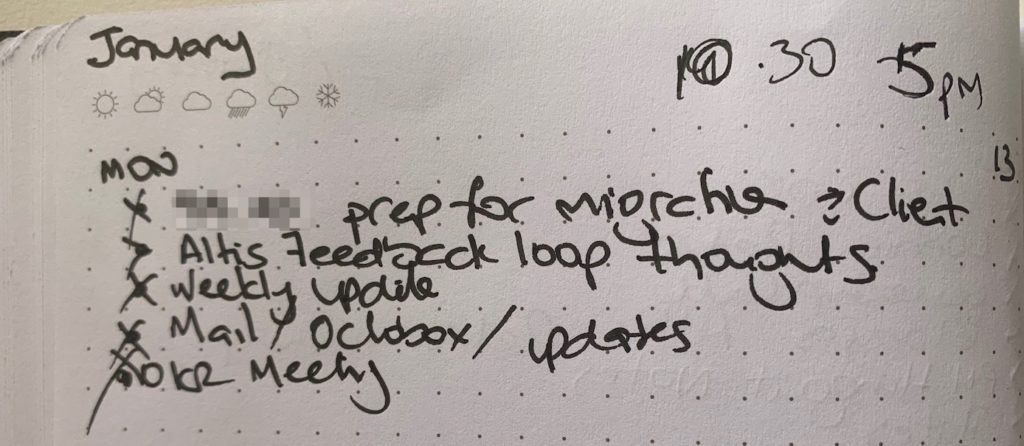 January
.30 5PM
13
MON
prep for → Client
Altis Feedback loop thoughts
Weekly update
Mail / Octobox / updates
OKR Meeting